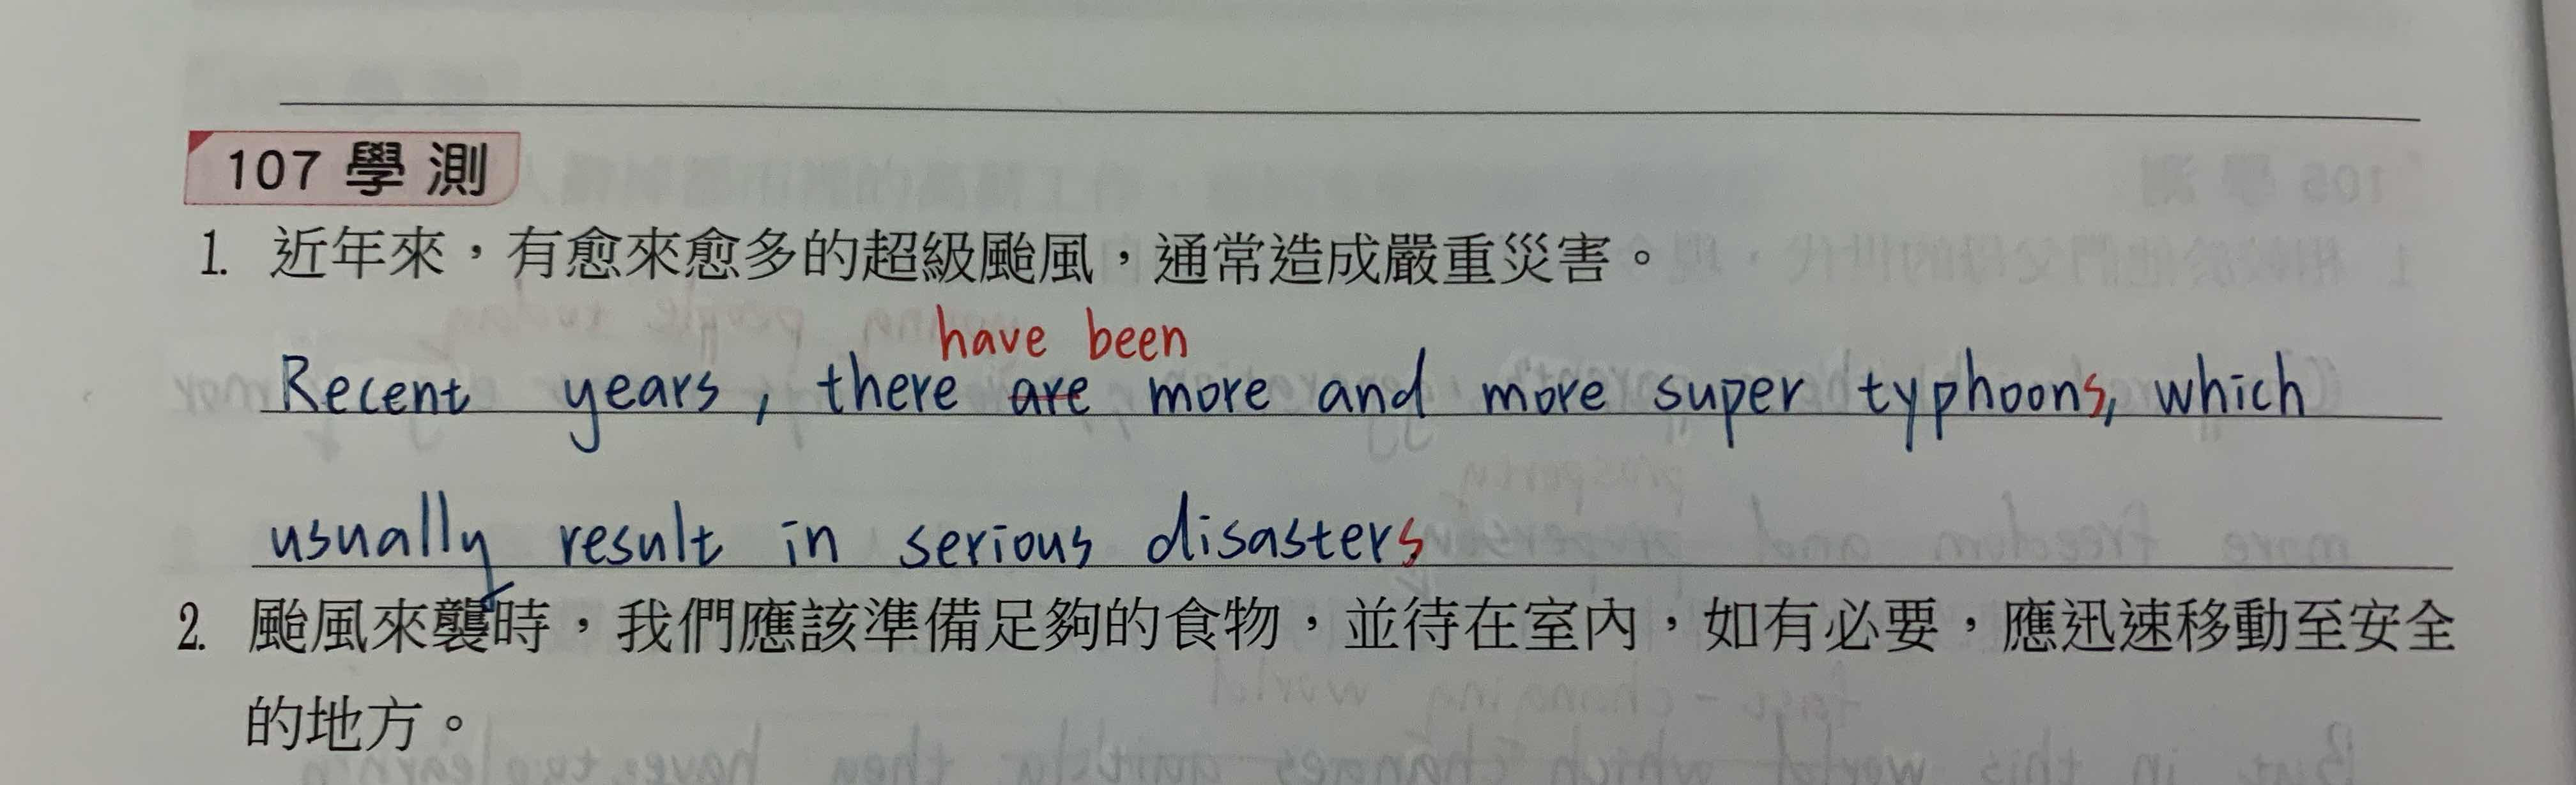 107 學測
1. 近年來，有愈來愈多的超級颱風，通常造成嚴重災害。
have been
Recent years, there are more and more super typhoons, which
usually result in serious disasters
2. 颱風來襲時，我們應該準備足夠的食物，並待在室內，如有必要，應迅速移動至安全
的地方。